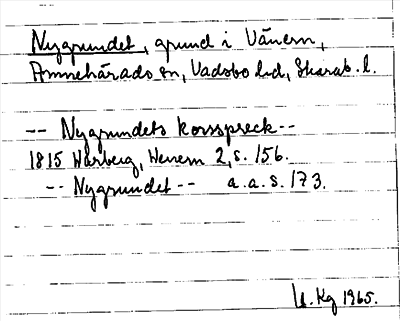 Nygrundet, grund i Vänern,
Amnehärads sn, Vadsbo hd, Skarab. l.
-- Nygrundets korsspreck --
1815 Warberg, Wenern 2, s. 156.
-- Nygrundet -- a. a. s. 173.
Kg 1965.